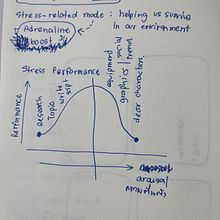 stress-related mode: helping us survive
in our environment
Adrenaline
boost
Stress Performance
Performance
Research
Topic
write
script
equipment
graphics
social
trend
clear characters
arousal